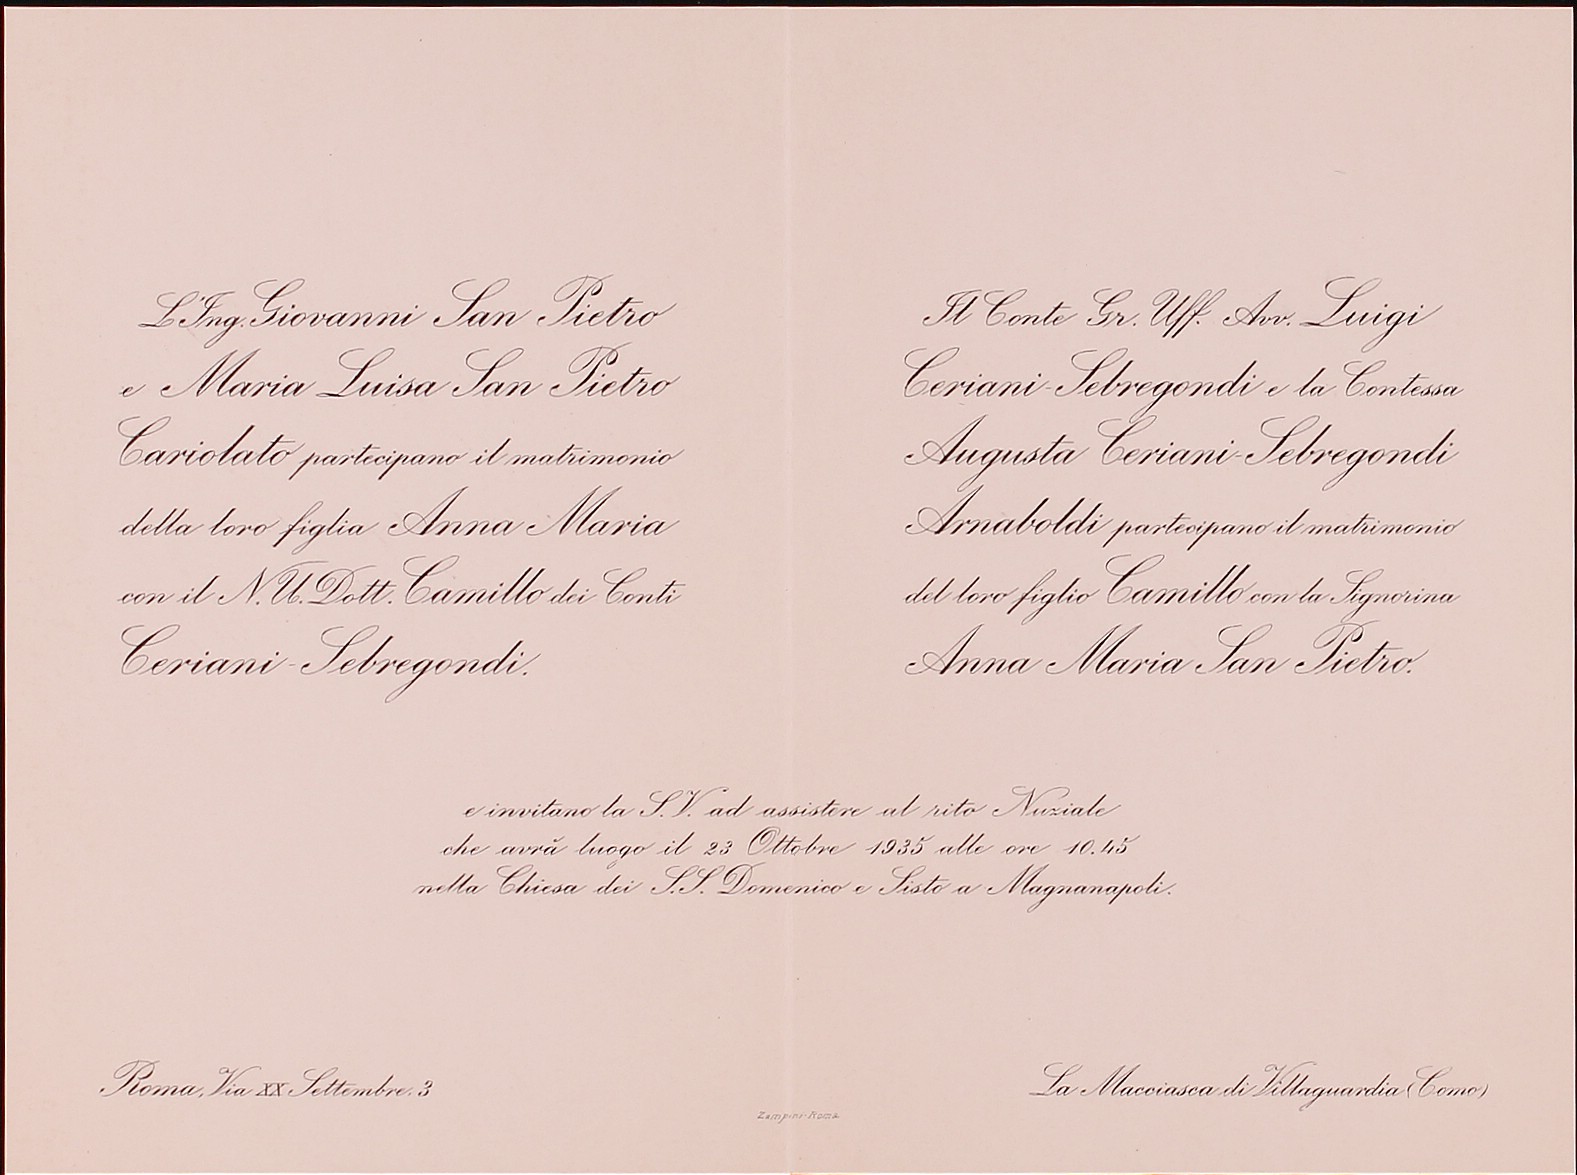 L'Ing. Giovanni San Pietro
e Maria Luisa San Pietro
Cariolato partecipano il matrimonio
della loro figlia Anna Maria
con il N. U. Dott. Camillo dei Conti
Ceriani-Sebregondi.
Il Conte Gr. Uff. Avv. Luigi
Ceriani-Sebregondi e la Contessa
Augusta Ceriani-Sebregondi
Arnaboldi partecipano il matrimonio
del loro figlio Camillo con la Signorina
Anna Maria San Pietro.
e invitano la S.V. ad assistere al rito Nuziale
che avrà luogo il 23 Ottobre 1935 alle ore 10.45
nella Chiesa dei S.S. Domenico e Sisto a Magnanapoli.
Roma, Via XX Settembre. 3
La Macciasca di Villaguardia (Como)
Zampini-Roma